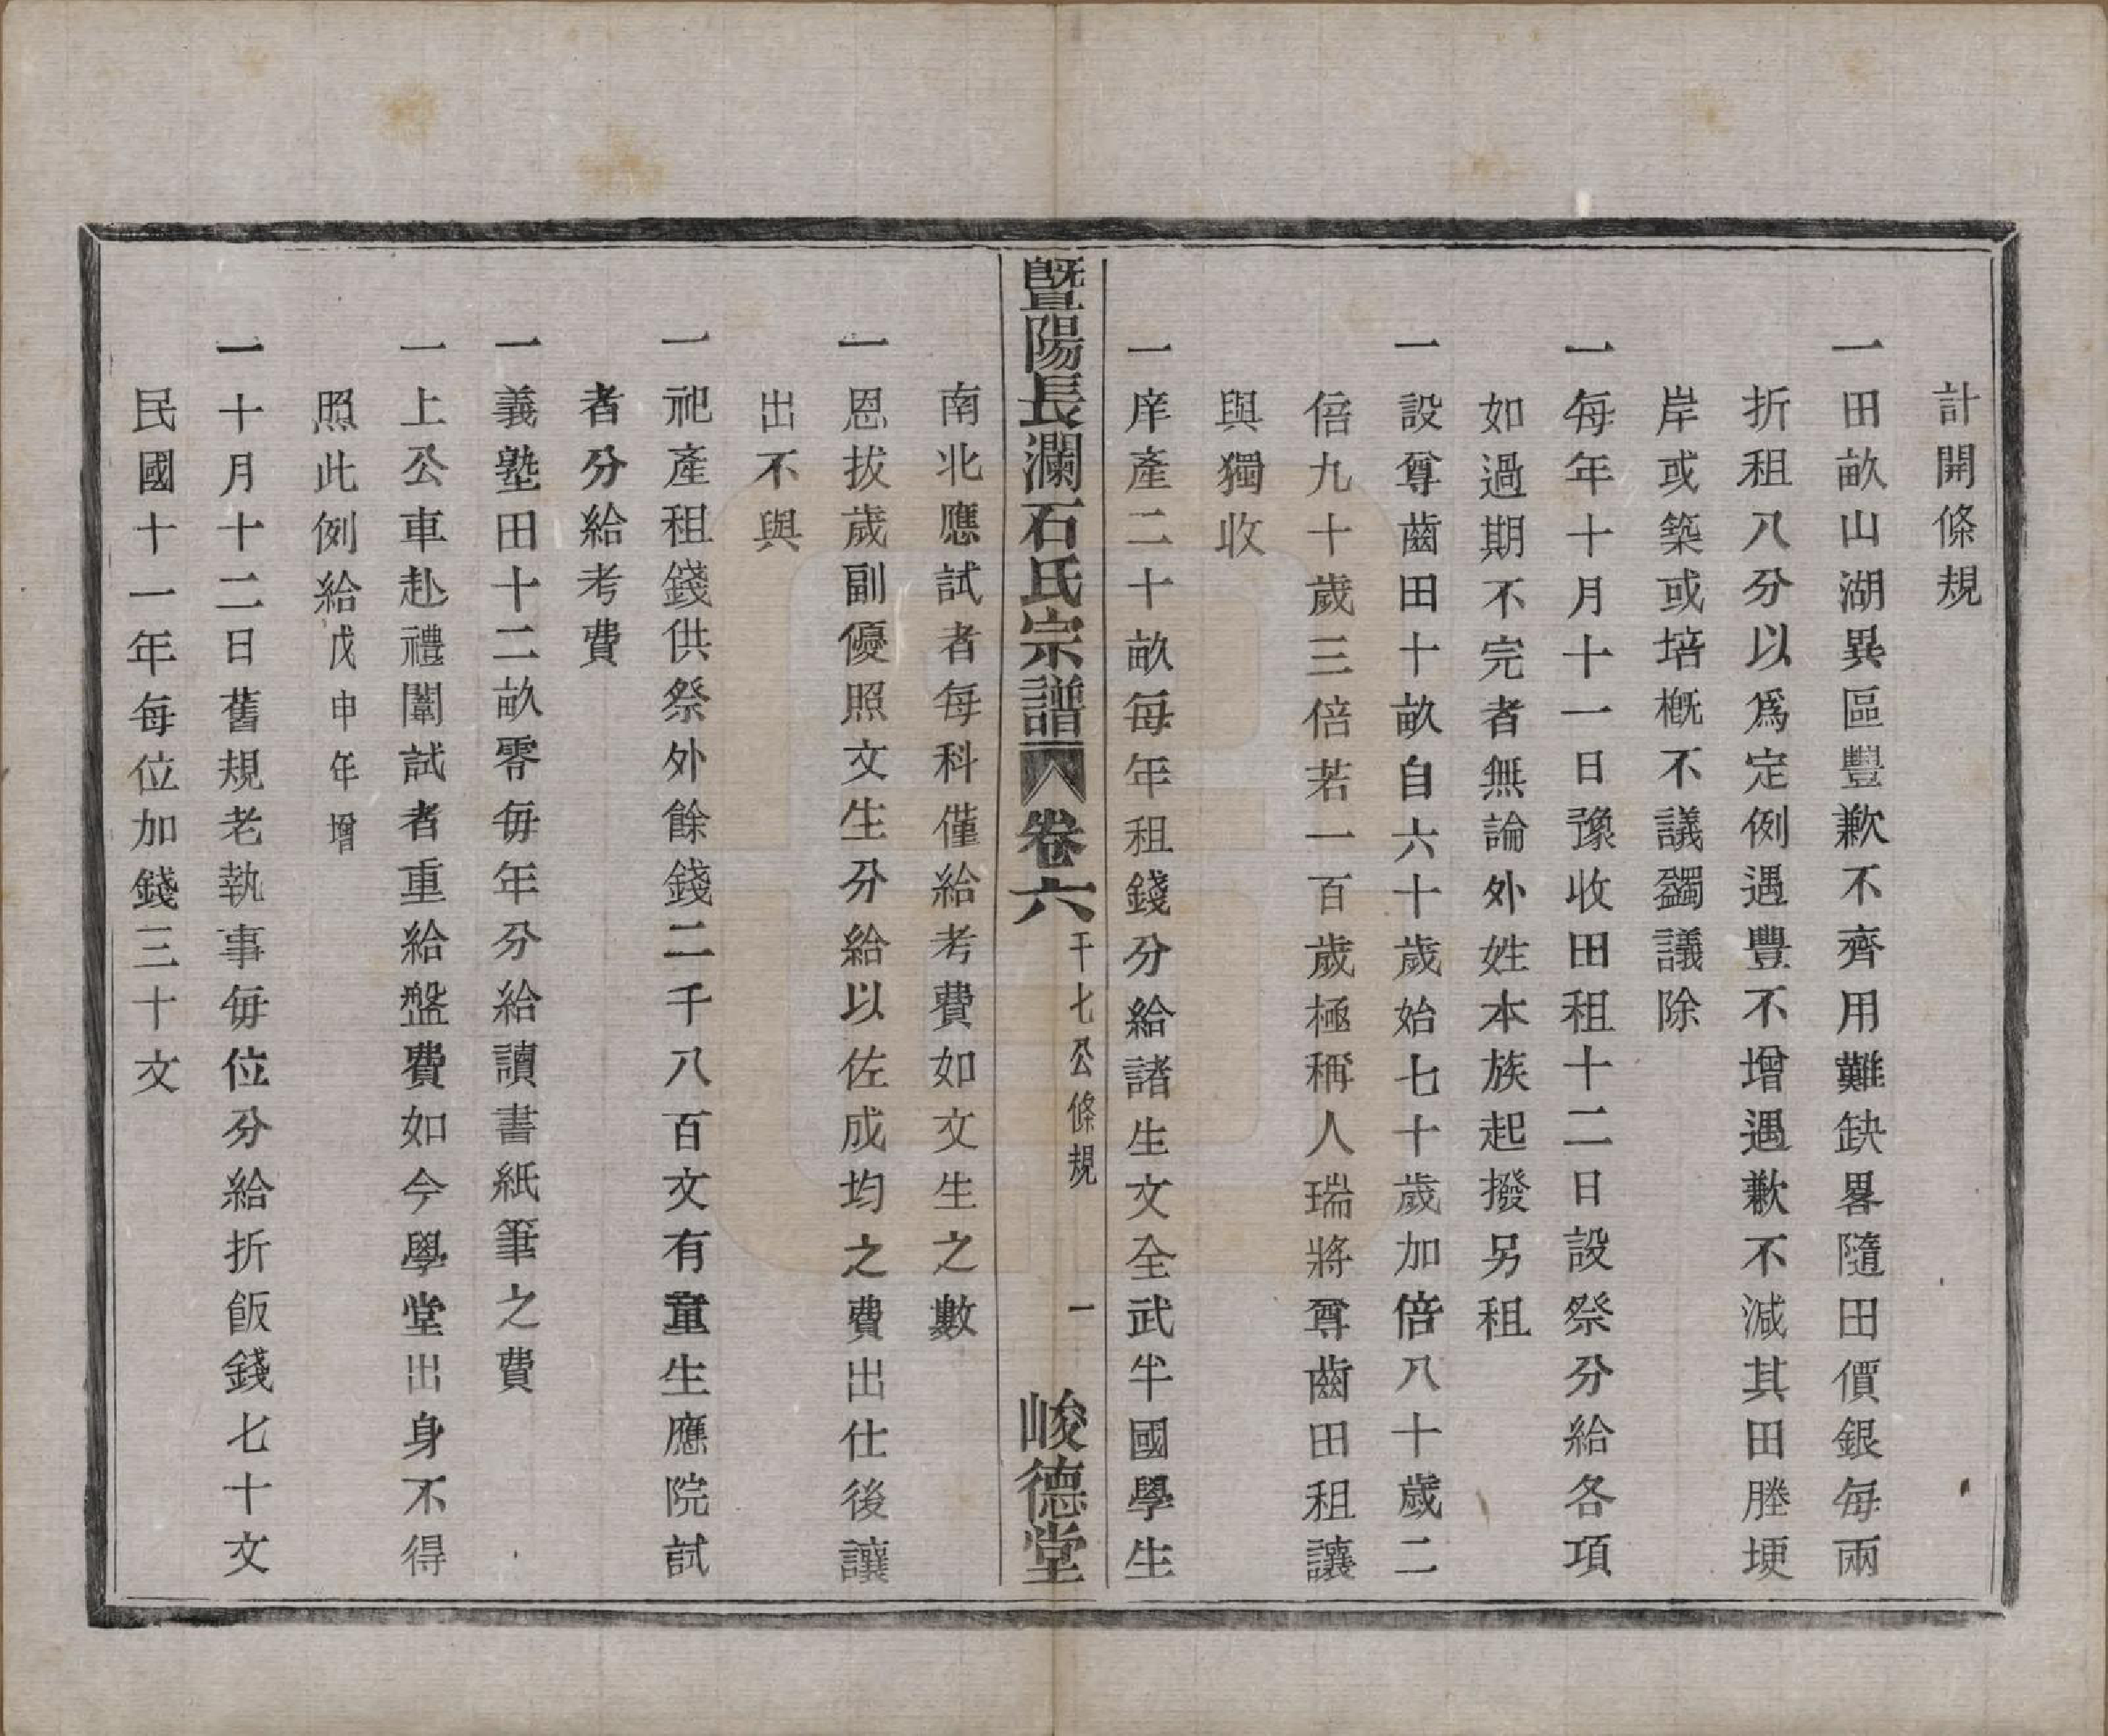 計開條規
一田畝山湖異區豐歉不齊用難缺畧隨田價銀每兩
折租八分以爲定例遇豐不增遇歉不減其田塍埂
岸或築或培槪不議蠲議除
一每年十月十一日豫收田租十二日設祭分給各項
如過期不完者無論外姓本族起撥另租
一設尊齒田十畝自六十歲始七十歲加倍八十歲二
倍九十歲三倍若一百歲極稱人瑞將尊齒田租讓
與獨收
一庠產二十畝每年租錢分給諸生文全武半國學生
暨陽長瀾石氏宗譜 卷六 千七公條規 一 峻德堂
南北應試者每科僅給考費如文生之數
一恩拔歲副優照文生分給以佐成均之費出仕後讓
出不與
一祀產租錢供祭外餘錢二千八百文有童生應院試
者分給考費
一義塾田十二畝零每年分給讀書紙筆之費
一上公車赴禮闈試者重給盤費如今學堂出身不得
照此例給戊申年增
一十月十二日舊規老執事每位分給折飯錢七十文
民國十一年每位加錢三十文